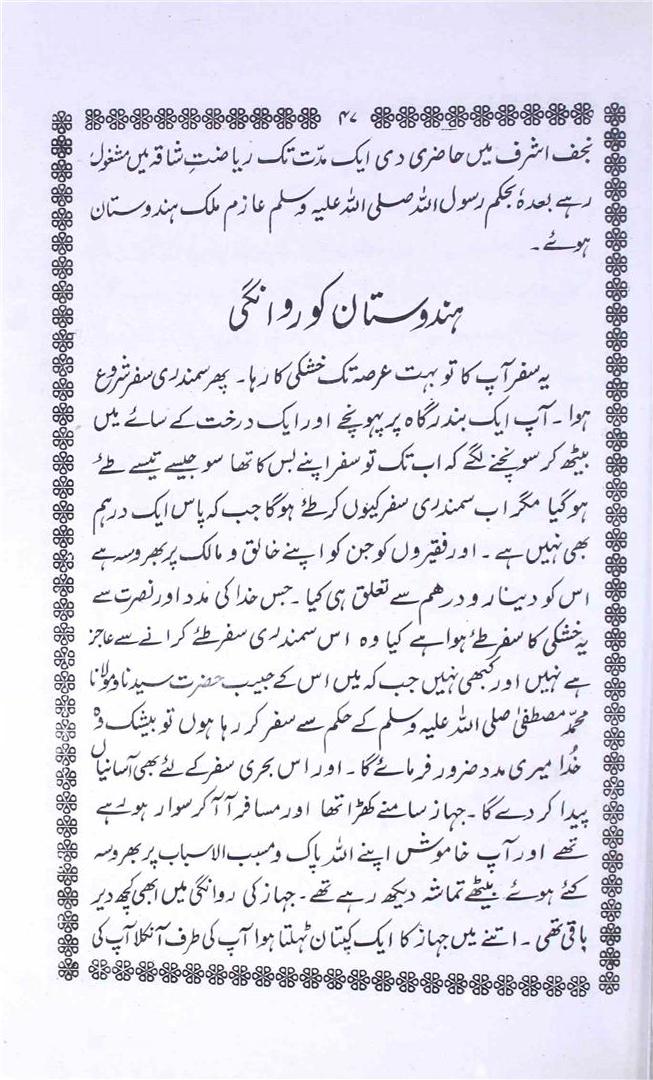 ۴۷
نجف اشرف میں حاضری دی ایک مدّت تک ریاضتِ شاقہ میں مشغول
رہے بعدہٗ بحکم رسول اللہ صلی اللہ علیہ وسلم عازم ملک ہندوستان
ہوئے۔
ہندوستان کو روانگی
یہ سفر آپ کا تو بہت عرصہ تک خشکی کا رہا۔ پھر سمندری سفر شروع
ہوا۔ آپ ایک بندرگاہ پر پہونچے اور ایک درخت کے سائے میں
بیٹھ کر سونچنے لگے کہ اب تک تو سفر اپنے بس کا تھا سو جیسے تیسے طئے
ہو گیا مگر اب سمندری سفر کیوں کر طئے ہوگا جب کہ پاس ایک درہم
بھی نہیں ہے۔ اور فقیروں کو جن کو اپنے خالق و مالک پر بھروسہ ہے
اس کو دینار و درھم سے تعلق ہی کیا۔ جس خدا کی مدد اور نصرت سے
یہ خشکی کا سفر طئے ہوا ہے کیا وہ اس سمندری سفر طئے کرانے سے عاجز
ہے نہیں اور کبھی نہیں جب کہ میں اس کے حبیب حضرت سیدنا و مولانا
محمّد مصطفیٰ صلی اللہ علیہ وسلم کے حکم سے سفر کر رہا ہوں تو بیشک وہ
خُدا میری مدد ضرور فرمائے گا۔ اور اس بحری سفر کے لئے بھی آسانیاں
پیدا کر دے گا۔ جہاز سامنے کھڑا تھا اور مسافر آ آ کر سوار ہو رہے
تھے اور آپ خاموش اپنے اللہ پاک و مسبب الاسباب پر بھروسہ
کئے ہوئے بیٹھے تماشہ دیکھ رہے تھے۔ جہاز کی روانگی میں ابھی کچھ دیر
باقی تھی۔ اتنے میں جہاز کا ایک کپتان ٹہلتا ہوا آپ کی طرف آنکلا آپ کی